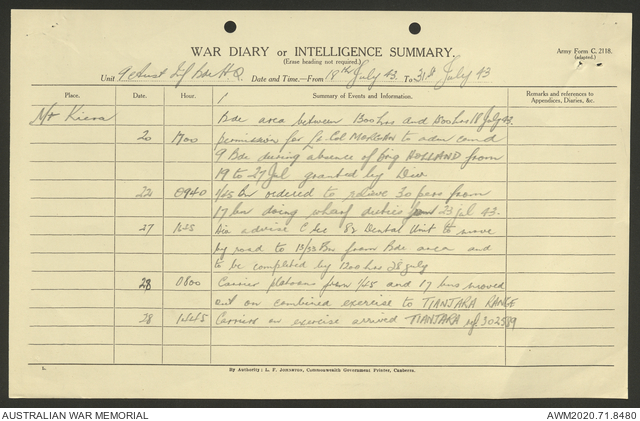 WAR DIARY or INTELLIGENCE SUMMARY.
(Erase heading not required.)
Army Form C. 2118.
(adapted.)
Unit 9 Aust Inf Bde H.Q. Date and Time.—From 18th July 43. To 31st July 43
Place. Date. Hour. Summary of Events and Information. Remarks and references to Appendices, Diaries, &c.
Mt Kiera Bde area between 1300 hrs and 1500 hrs 18 July 43.
20 1700 permission for Lt. Col to adm comd
9 Bde during absence of Brig HOLLAND from
19 to 27 Jul granted by Div
22 0940 1/45 Bn ordered to relieve 30 pers from
17 bn doing wharf duties from 23 jul 43.
27 Div advise C Sec 82 Dental Unit to move
by road to 13/33 Bn from Bde area and
to be completed by 1200 hrs 28 july
28 0800 Carrier platoons from 1/45 and 17 bns moved
out on combined exercise to TIANJARA RANGE
28 Carriers on exercise arrived TIANJARA ref 302589
1. By Authority: L. F. Johnston, Commonwealth Government Printer, Canberra.
AUSTRALIAN WAR MEMORIAL
AWM2020.71.8480